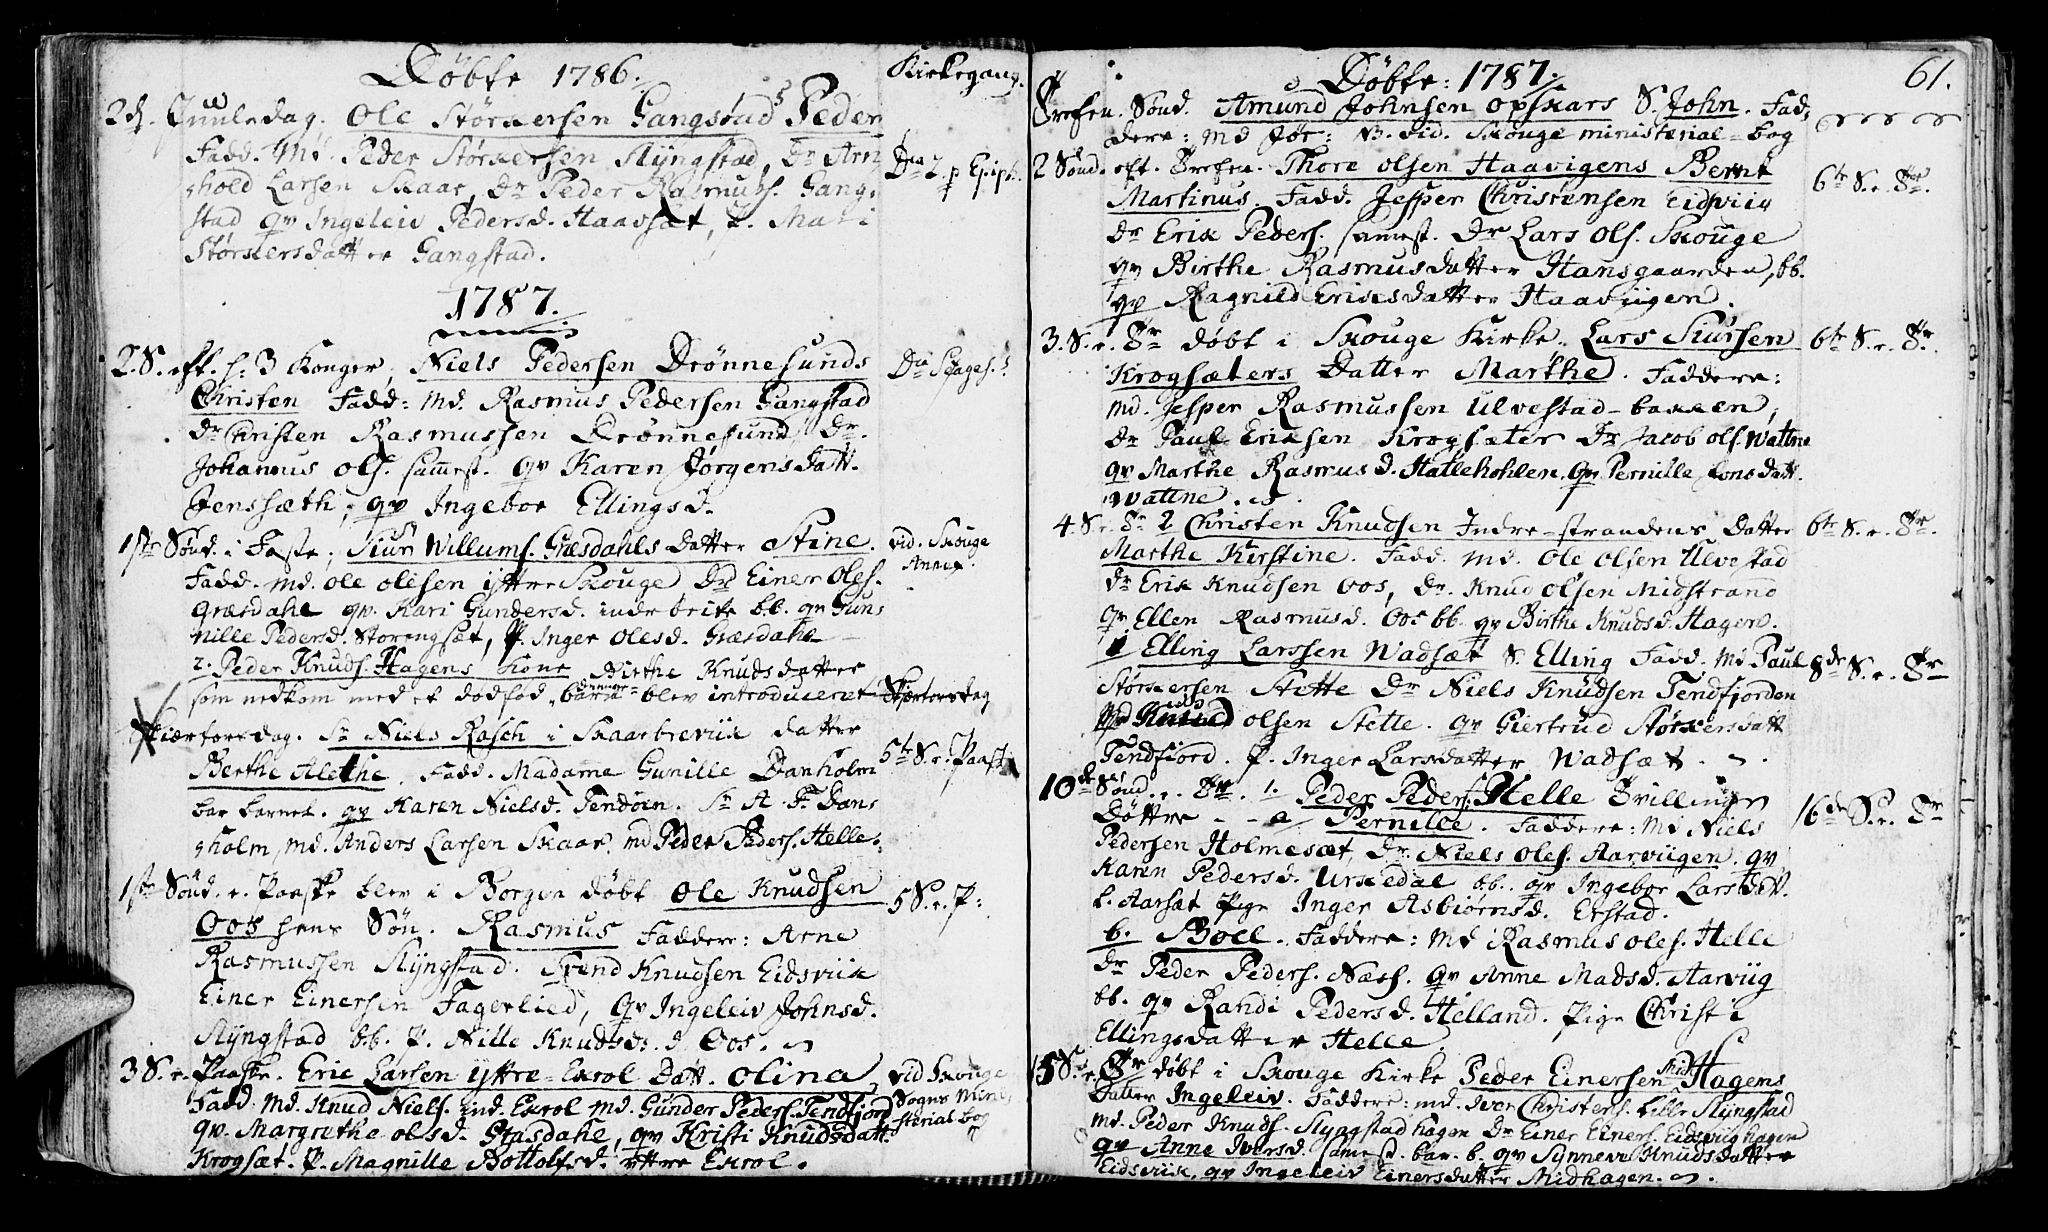 Døbte 1786.
Kirkegang.
2d. Juuledag. Ole Størkersen Gangstad S. Peder
Fadd. Md. Peder Størkersen Slyngstad, Dr Arn
thold Larsen Skaar, Dr Peder Rasmuss. Gang-
stad qv Ingeleiv Pedersd. Haavsæt, P. Mari
Størkersdatter Gangstad.
Dca 2 p Epiph.
1787.
2. S. eft. h: 3 Konger, Niels Pedersen Drønnesunds
Christen Fadd: Md. Rasmus Pedersen Gangstad
Dr Christen Rasmussen Drønnesund, Dr.
Johannus Ols. sammest. qv Karen Jørgensdatt.
Jenssæth, qv Ingebor Ellingsd.
1ste Sønd. i Faste, Siur Willums. Græsdahls Datter Stine.
Fadd. Md. Ole Olesen yttre Skouge Dr Einer Oles.
Græsdahl qv. Kari Gundersd. indrebrite bb. qv Gun-
nille Pedersd. Storengsæt, P. Inger Olesd. Græsdahl
vid. Skouge
Annex.
2. Peder Knuds. Hagens Kone Birthe Knudsdatter
som nedkom med et dødfød barn blev introduceret Skiertorsdag
Skiærtorsdag. Sr Niels Rasch i Skaarbreviik datter
Berthe Alethe, Fadd. Madame Gunille Danholm
bar barnet. qv Karen Nielsd. Tendøen. Sr A. F. Dan-
holm, Md. Anders Larsen Skaar. Md Peder Peders. Helle.
5te S. e. Paaske
1ste Sønd. e. Paaske blev i Borgen døbt Ole Knudsen
Oos hans Søn. Rasmus Faddere: Arne
Rasmussen Slyngstad. Trend Knudsen Eidsviik
Einer Einersen Fagerlied, qv Ingeleiv Johnsd.
Slyngstad bb. P. Nille Knudsd. Oos.
5 S. e. P:
3 S. e. Paaske. Eric Larsen yttre-Exrol Datt. Olina
Fadd. Md. Knud Niels. ind. Exrol Md. Gunder Peders. Tendfjord
qv. Margrethe Olsd. Græsdahl, qv Kristi Knudsdatt.
Krogsæt. P. Magnille Bottolfsd. yttre Exrol.
vid Skouge
Sogns Mini-
sterial bog
61.
Døbte: 1787.
Trefen. Sønd. Amund Johnsen Opskars S. John. Fad-
dere: Md Jør: N. vid. Skouge ministerial-bog
2 Sønd. eft. Trefen. Thore Olsen Haavigens Bernt
Martinus. Fadd. Jesper Christensen Eidsviig
Dr Erik Peders. sammest. Dr Lars Ols. Skouge
qv Birthe Rasmusdatter Hansgaarden, bb.
qv Ragnild Eriksdatter Haavigen.
6te S. e. Tr.
3. S. e. Tr døbt i Skouge Kirke. Lars Siursen
Krogsæters Datter Marthe. Faddere:
Md. Jesper Rasmussen Ulvestad-bakken,
Dr Paul Eriksen Krogsæter Dr Jacob Ols. Wattne
qv Marthe Rasmusd. Hattlehohlen. qv Pernille Jonsdatt.
Wattne.
6te S. e. Tr
4. S. e. Tr 1 Christen Knudsen Indre-strandens Datter
Marthe Kirstine. Fadd. Md. Ole Olsen Ulvestad
Dr Erik Knudsen Oos, Dr. Knud Olsen Midstrand
qv Ellen Rasmusd. Oos bb. qv Birthe Knudsd. Hagen.
6te S. e. Tr.
Elling Larssen Wadsæt S. Elling Fadd. Md Paul
Størkersen Stette Dr Niels Knudsen Tendfjorden
Olsen Stette. qv Giertrud Størkersdatt
Tendfjord. P. Inger Larsdatter Wadsæt.
8de S. e. Tr
10de Sønd. e. Tr. 1. Peder Peders. Helle Tvillinger
Døttre - - a/ Pernille. Faddere: Md Niels
Pedersen Holmesæt, Dr. Niels Oles. Aarviigen, qv
Karen Pedersd. Urkedal bb. qv Ingebor Larsdatt.
Aarsæt Pige Inger Asbiørnsd. Erstad.
16de S. e. Tr
b. Boel. Faddere: Md Rasmus Oles. Helle
Dr Peder Peders. Næss. qv Anne Madsd. Aarviig
bb. qv Randi Pedersd. Helland. Pige Christi
Ellingsdatter Helle
15 S. e. Tr døbt i Skouge Kirke Peder Einersen Mid Hagens
Datter Ingeleiv. Faddere: Md. Iver Christens. lille Slyngstad
Md. Peder Knuds. Slyngstadhagen Dr Einer Einers. Eidsviighagen
qv Anne Iversd. sammest. bar. b. qv Synneve Knudsdatter
Eidsviik, qv Ingeleiv Einersdatter Midhagen.